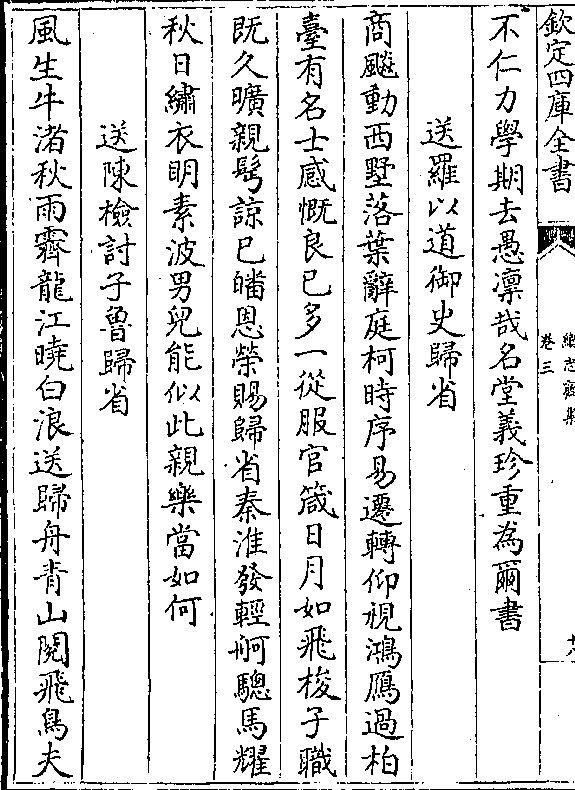 欽定四庫全書
繼志齋集
卷三
不仁力學期去愚凛哉名堂義珍重為爾書
送羅以道御史歸省
商飈動西墅落葉辭庭柯時序易遷轉仰視鴻鴈過柏
臺有名士感慨良已多一從服官箴日月如飛梭子職
既久曠親髩諒已皤恩榮賜歸省秦淮發輕舸驄馬耀
秋日繡衣明素波男兒能似此親樂當如何
送陳檢討子魯歸省
風生牛渚秋雨霽龍江曉白浪送歸舟青山閱飛鳥夫